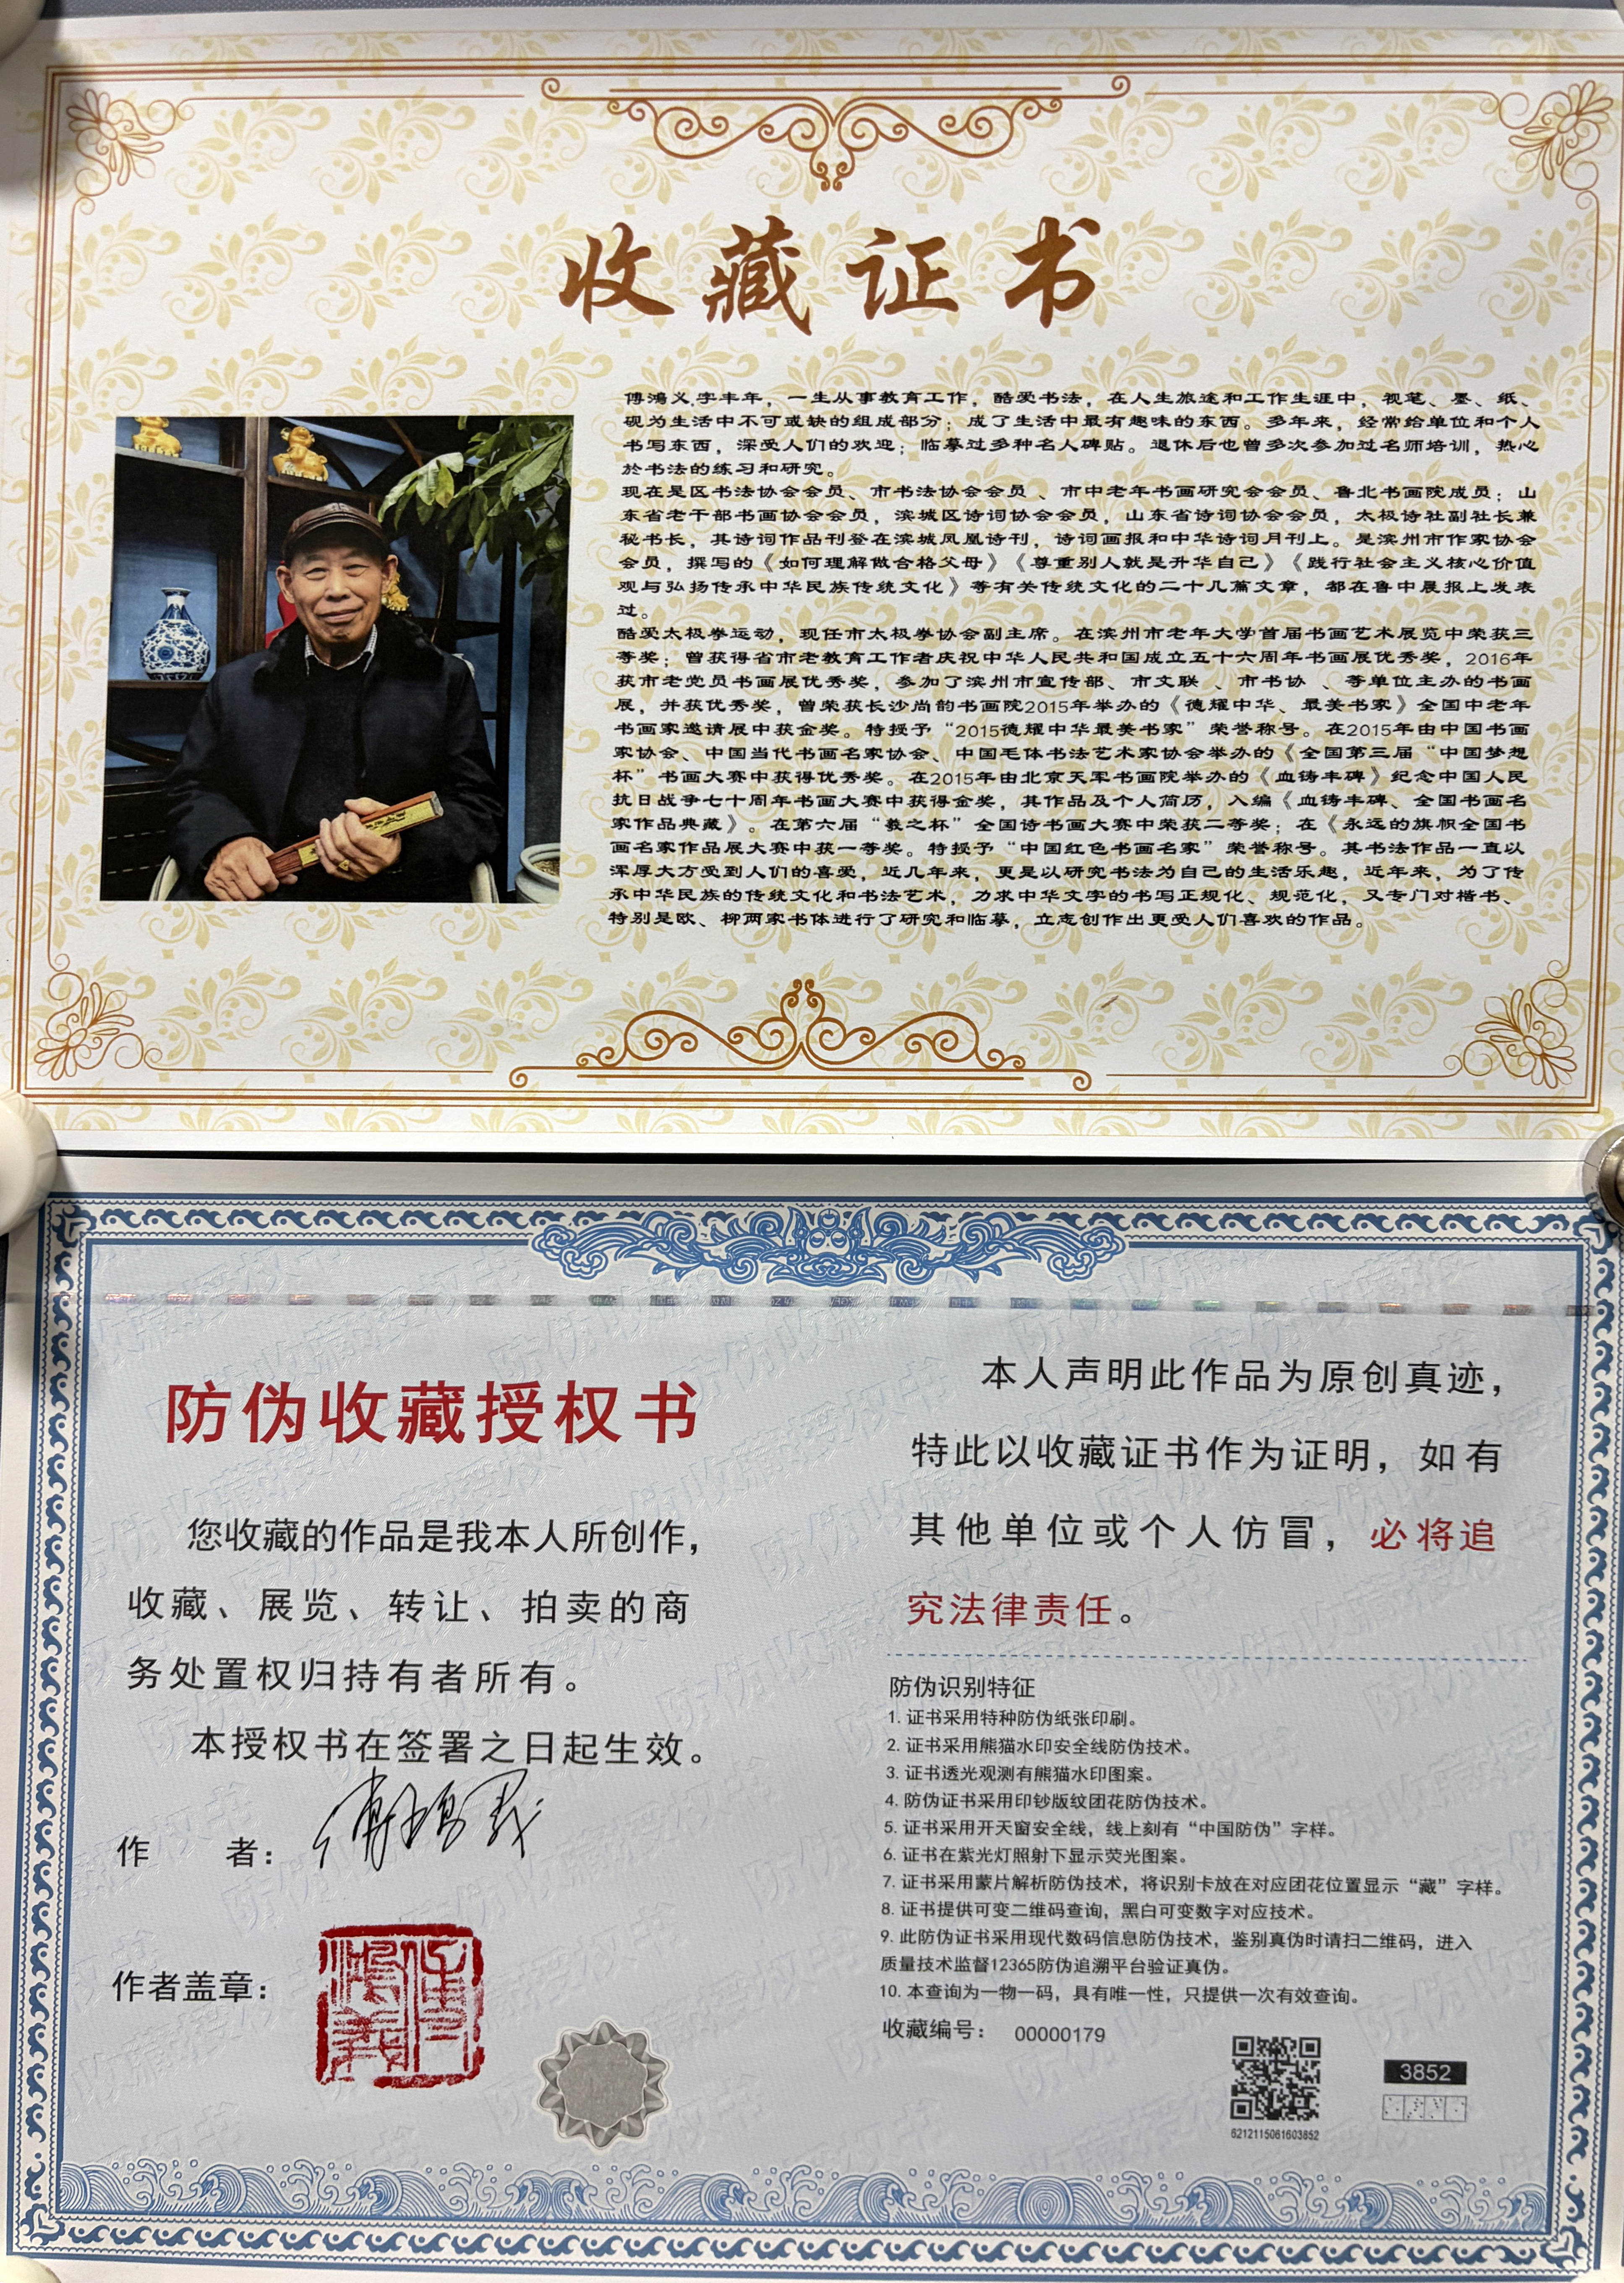 收藏证书
傅鸿义,字丰年，一生从事教育工作，酷爱书法，在人生旅途和工作生涯中，视笔、墨、纸、
砚为生活中不可或缺的组成部分；成了生活中最有趣味的东西。多年来，经常给单位和个人
书写东西，深受人们的欢迎；临摹过多种名人碑贴。退休后也曾多次参加过名师培训，热心
於书法的练习和研究。
现在是区书法协会会员、市书法协会会员 、市中老年书画研究会会员、鲁北书画院成员；山
东省老干部书画协会会员，滨城区诗词协会会员，山东省诗词协会会员，太极诗社副社长兼
秘书长，其诗词作品刊登在滨城凤凰诗刊，诗词画报和中华诗词月刊上。是滨州市作家协会
会员，撰写的《如何理解做合格父母》《尊重别人就是升华自己》《践行社会主义核心价值
观与弘扬传承中华民族传统文化》等有关传统文化的二十几篇文章，都在鲁中晨报上发表
过。
酷爱太极拳运动，现任市太极拳协会副主席。在滨州市老年大学首届书画艺术展览中荣获三
等奖；曾获得省市老教育工作者庆祝中华人民共和国成立五十六周年书画展优秀奖，2016年
获市老党员书画展优秀奖，参加了滨州市宣传部、市文联 、市书协 、等单位主办的书画
展，并获优秀奖，曾荣获长沙尚韵书画院2015年举办的《德耀中华、最美书家》全国中老年
书画家邀请展中获金奖。特授予“2015德耀中华最美书家”荣誉称号。在2015年由中国书画
家协会、中国当代书画名家协会、中国毛体书法艺术家协会举办的《全国第三届“中国梦想
杯”书画大赛中获得优秀奖。在2015年由北京天军书画院举办的《血铸丰碑》纪念中国人民
抗日战争七十周年书画大赛中获得金奖，其作品及个人简历，入编《血铸丰碑、全国书画名
家作品典藏》。在第六届“羲之杯”全国诗书画大赛中荣获二等奖；在《永远的旗帜全国书
画名家作品展大赛中获一等奖。特授予“中国红色书画名家”荣誉称号。其书法作品一直以
浑厚大方受到人们的喜爱，近几年来，更是以研究书法为自己的生活乐趣，近年来，为了传
承中华民族的传统文化和书法艺术，力求中华文字的书写正规化、规范化，又专门对楷书、
特别是欧、柳两家书体进行了研究和临摹，立志创作出更受人们喜欢的作品。
防伪收藏授权书
您收藏的作品是我本人所创作，
收藏、展览、转让、拍卖的商
务处置权归持有者所有。
本授权书在签署之日起生效。
作 者：傅鸿义
作者盖章：
傅鸿义印
本人声明此作品为原创真迹，
特此以收藏证书作为证明，如有
其他单位或个人仿冒，必将追
究法律责任。
防伪识别特征
1. 证书采用特种防伪纸张印刷。
2. 证书采用熊猫水印安全线防伪技术。
3. 证书透光观测有熊猫水印图案。
4. 防伪证书采用印钞版纹团花防伪技术。
5. 证书采用开天窗安全线，线上刻有“中国防伪”字样。
6. 证书在紫光灯照射下显示荧光图案。
7. 证书采用蒙片解析防伪技术，将识别卡放在对应团花位置显示“藏”字样。
8. 证书提供可变二维码查询，黑白可变数字对应技术。
9. 此防伪证书采用现代数码信息防伪技术，鉴别真伪时请扫二维码，进入
质量技术监督12365防伪追溯平台验证真伪。
10. 本查询为一物一码，具有唯一性，只提供一次有效查询。
收藏编号： 00000179
3852
6212115061603852